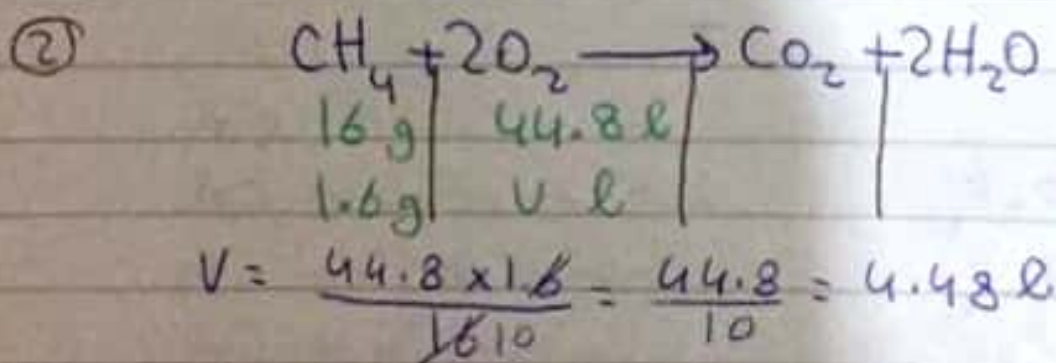 ② CH₄ + 2O₂ ⟶ CO₂ + 2H₂O
16 g 44.8 l
1.6 g V l
V = 44.8 x 1.6 / 16 10 = 44.8 / 10 = 4.48 l